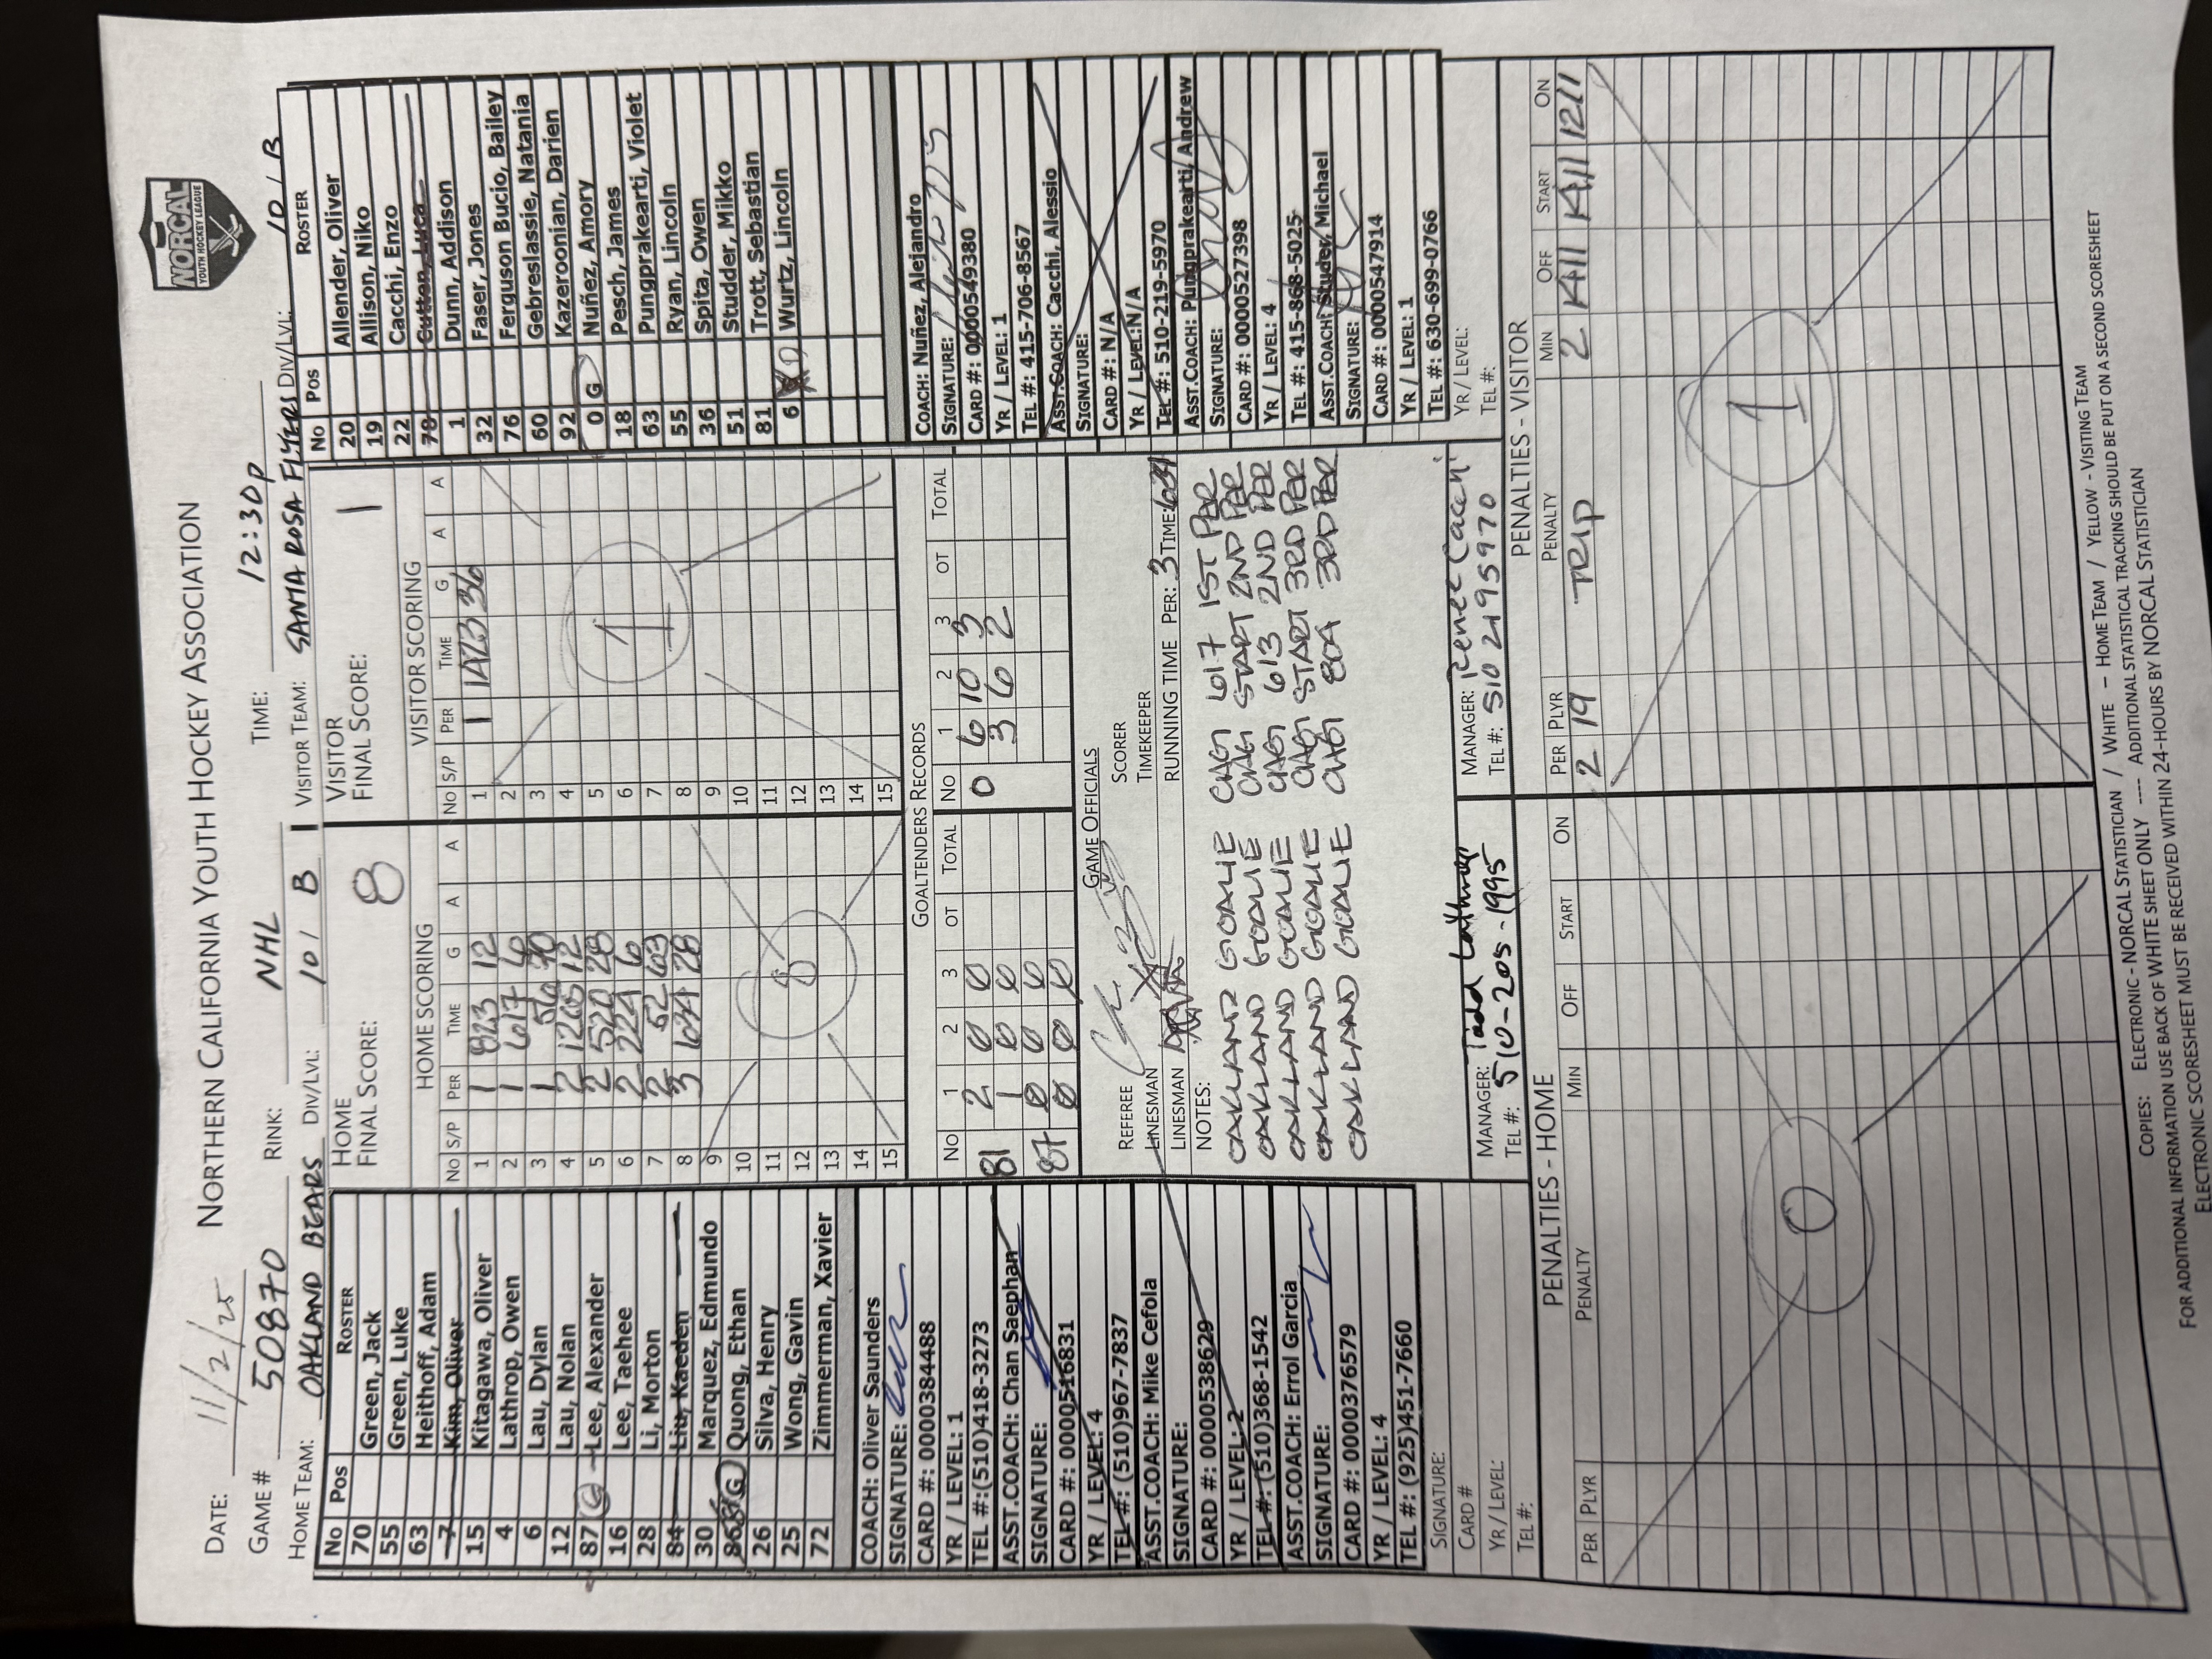 NORCAL
YOUTH HOCKEY LEAGUE
NORTHERN CALIFORNIA YOUTH HOCKEY ASSOCIATION
DATE: 11/2/25
GAME # 50870 RINK: NHL TIME: 12:30P
HOME TEAM: OAKLAND BEARS DIV/LVL: 10 / B VISITOR TEAM: SANTA ROSA FLYERS DIV/LVL: 10 / B
No Pos ROSTER
70 Green, Jack
55 Green, Luke
63 Heithoff, Adam
7 Kim, Oliver
15 Kitagawa, Oliver
4 Lathrop, Owen
6 Lau, Dylan
12 Lau, Nolan
87 G Lee, Alexander
16 Lee, Taehee
28 Li, Morton
84 Liu, Kaeden
30 Marquez, Edmundo
G Quong, Ethan
26 Silva, Henry
25 Wong, Gavin
72 Zimmerman, Xavier
COACH: Oliver Saunders
SIGNATURE:
CARD #: 0000384488
YR / LEVEL: 1
TEL #:(510)418-3273
ASST.COACH: Chan Saephan
SIGNATURE:
CARD #: 0000516831
YR / LEVEL: 4
TEL #: (510)967-7837
ASST.COACH: Mike Cefola
SIGNATURE:
CARD #: 0000538629
YR / LEVEL: 2
TEL #: (510)368-1542
ASST.COACH: Errol Garcia
SIGNATURE:
CARD #: 0000376579
YR / LEVEL: 4
TEL #: (925)451-7660
SIGNATURE:
CARD #
YR / LEVEL:
TEL #:
HOME
FINAL SCORE: 8
HOME SCORING
No S/P PER TIME G A A
1 1 823 12
2 1 617 6
3 1
4 2 1205 12
5 2 520 28
6 2 224 6
7 2 52 63
8 3 1034 28
9
10
11
12
13
14
15
8
VISITOR
FINAL SCORE: 1
VISITOR SCORING
No S/P PER TIME G A A
1 1 1423 36
2
3
4
5
6
7
8
9
10
11
12
13
14
15
1
GOALTENDERS RECORDS
No 1 2 3 OT TOTAL No 1 2 3 OT TOTAL
81 2 0 0 0 6 10 3
1 0 0 3 6 2
87 0 0 0
0 0 0
GAME OFFICIALS
REFEREE SCORER
LINESMAN TIMEKEEPER
LINESMAN RUNNING TIME PER: 3 TIME:
NOTES:
OAKLAND GOALIE CHG 617 1ST PER
OAKLAND GOALIE CHG START 2ND PER
OAKLAND GOALIE CHG 613 2ND PER
OAKLAND GOALIE CHG START 3RD PER
OAKLAND GOALIE CHG 804 3RD PER
MANAGER: Todd Lathrop
TEL #: 510-205-1995
MANAGER: Renee Cacchi
TEL #: 510 2195970
No Pos ROSTER
20 Allender, Oliver
19 Allison, Niko
22 Cacchi, Enzo
78 Cutten, Luca
1 Dunn, Addison
32 Faser, Jones
76 Ferguson Bucio, Bailey
60 Gebreslassie, Natania
92 Kazeroonian, Darien
0 G Nuñez, Amory
18 Pesch, James
63 Pungprakearti, Violet
55 Ryan, Lincoln
36 Spita, Owen
51 Studder, Mikko
81 Trott, Sebastian
6 Wurtz, Lincoln
COACH: Nuñez, Alejandro
SIGNATURE:
CARD #: 0000549380
YR / LEVEL: 1
TEL #: 415-706-8567
ASST.COACH: Cacchi, Alessio
SIGNATURE:
CARD #: N/A
YR / LEVEL:N/A
TEL #: 510-219-5970
ASST.COACH: Pungprakearti, Andrew
SIGNATURE:
CARD #: 0000527398
YR / LEVEL: 4
TEL #: 415-868-5025
ASST.COACH: Studer, Michael
SIGNATURE:
CARD #: 0000547914
YR / LEVEL: 1
TEL #: 630-699-0766
YR / LEVEL:
TEL #:
PENALTIES - HOME
PER PLYR PENALTY MIN OFF START ON
0
PENALTIES - VISITOR
PER PLYR PENALTY MIN OFF START ON
2 19 TRIP 2 1411 1411 1211
1
COPIES: ELECTRONIC - NORCAL STATISTICIAN / WHITE - HOME TEAM / YELLOW - VISITING TEAM
FOR ADDITIONAL INFORMATION USE BACK OF WHITE SHEET ONLY ---- ADDITIONAL STATISTICAL TRACKING SHOULD BE PUT ON A SECOND SCORESHEET
ELECTRONIC SCORESHEET MUST BE RECEIVED WITHIN 24-HOURS BY NORCAL STATISTICIAN